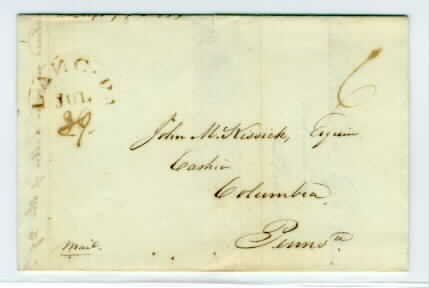 LANC. Pa
JUL
29.
6
John McKissick, Esquire
Cashier
Columbia
Pennsa
Mail.